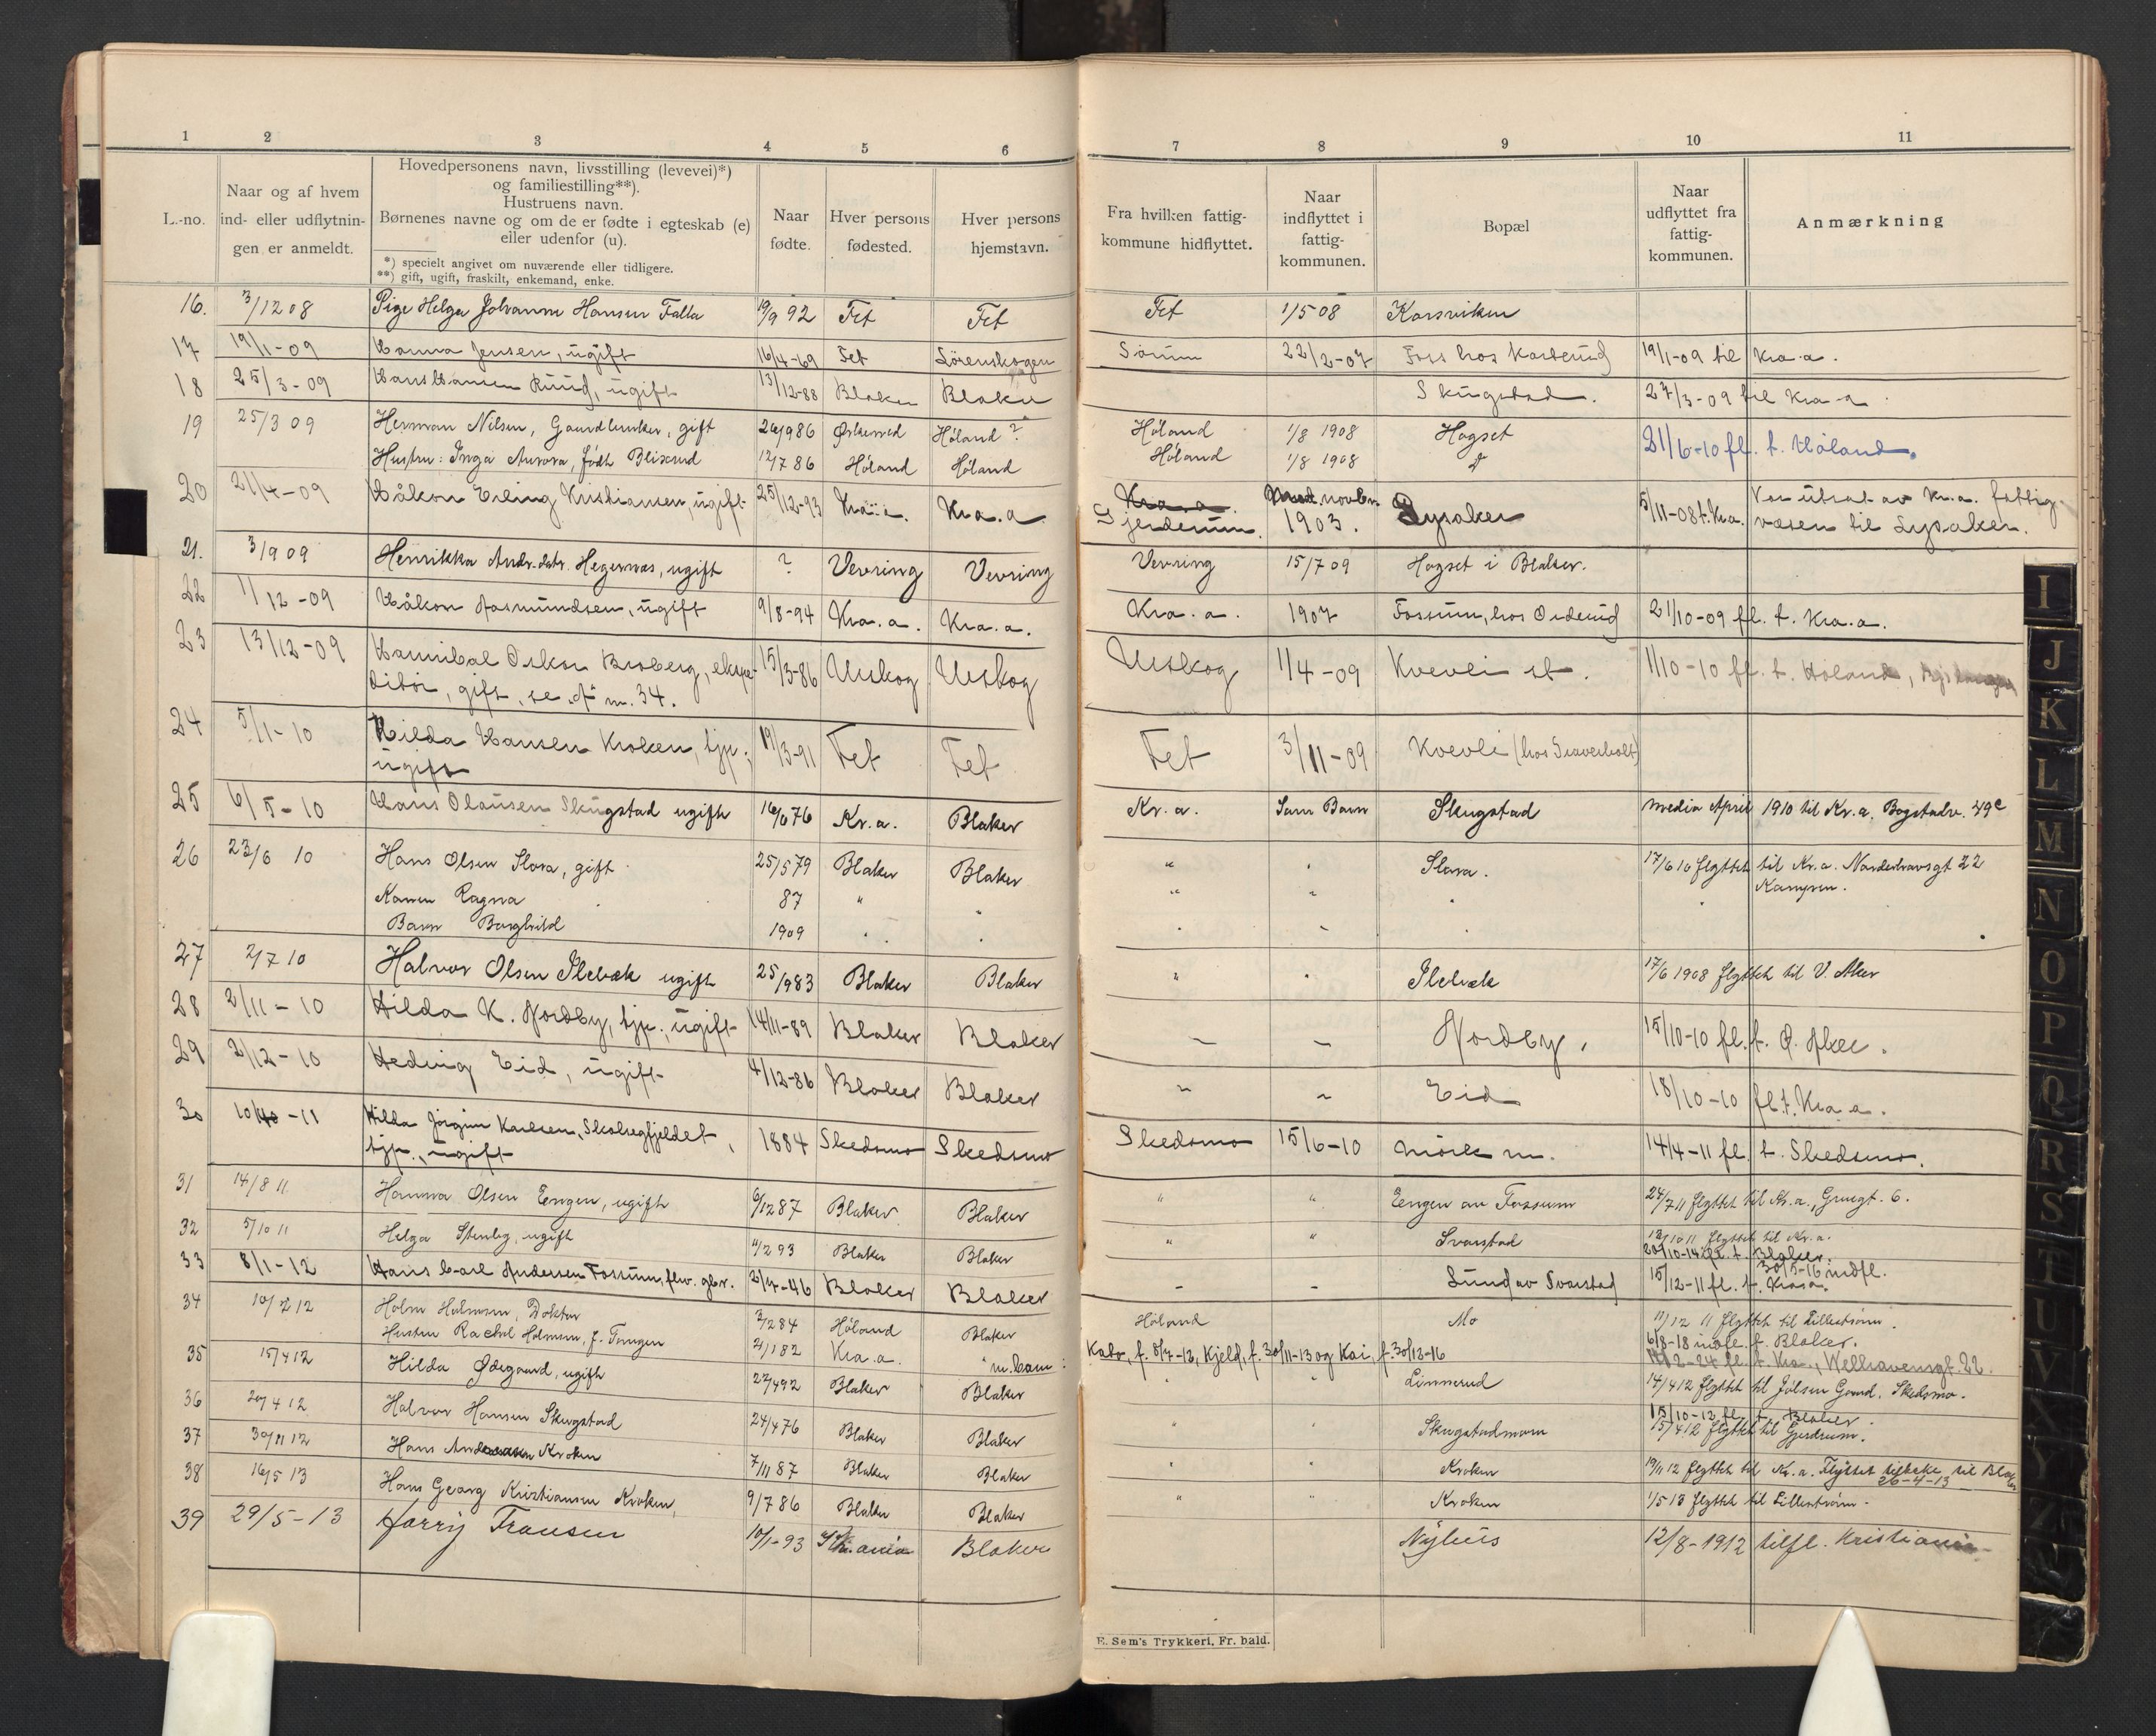 1 2 3 4 5 6 7 8 9 10 11
L.-no.
Naar og af hvem
ind- eller udflytnin-
gen er anmeldt.
Hovedpersonens navn, livsstilling (levevei)*)
og familiestilling**).
Hustruens navn.
Børnenes navne og om de er fødte i egteskab (e)
eller udenfor (u).
*) specielt angivet om nuværende eller tidligere.
**) gift, ugift, fraskilt, enkemand, enke.
Naar
fødte.
Hver persons
fødested.
Hver persons
hjemstavn.
Fra hvilken fattig-
kommune hidflyttet.
Naar
indflyttet i
fattig-
kommunen.
Bopæl
Naar
udflyttet fra
fattig-
kommunen.
Anmærkning
16. 3/12 08 Pige Helga Johanne Hansen Falla 19/9 92 Fet Fet Fet 1/5 08 Korsviken
17 19/1-09 Hanna Jensen, ugift 16/4-69 Fet Lörenskogen Sörum 22/2-07 Foss hos Karterud 19/1-09 til Kra.a.
18 25/3-09 Hans Hansen Ruud, ugift 13/12-88 Blaker Blaker Skugstad. 27/3-09 til Kra-a
19 25/3 09 Herman Nilsen, Gaardbruker, gift 26/9 86 Øskenved Høland? Høland 1/8 1908 Hogset 21/6-10 fl. t. Höland.
Hustru: Inga Aurora, født Blixrud 12/7 86 Høland Høland Høland 1/8 1908 d
20 21/4-09 Håkon Erling Kristiansen, ugift 25/12-93 Kra.a. Kra.a. Kra.a. novbr. Lysaker 5/11-08 t. Kra. Var utsat av Kr.a. fattig-
Gjerderum. 1903. væsen til Lysaker.
21. 3/9 09 Henrikka Andr.datr. Hegernæs, ugift ? Vevring Vevring Vevring 15/7 09 Hogset i Blaker.
22 1/12-09 Håkon Aasmundsen, ugift 9/8-94 Kra.a. Kra.a. Kra.a. 1907 Fossum, hos Orderud 21/10-09 fl. t. Kra.a.
23 13/12-09 Hannibal Oskar Broberg, ekspe- 15/3-86 Urskog Urskog Urskog 1/4-09 Kvevli st. 1/10-10 fl. t. Höland,
ditör, gift, se nr. 34.
24 5/1-10 Hilda Hansen Kroken, tjp.; 19/3-91 Fet Fet Fet 3/11-09 Kvevli (hos Sraverholt)
ugift
25 6/5-10 Hans Olausen Skugstad ugift 16/6 76 Kr.a. Blaker Kr.a. Som Barn Skugstad media April 1910 til Kr.a. Bogstadv. 49c
26 23/6 10 Hans Olsen Slora, gift 25/5 79 Blaker Blaker " " Slora. 17/6 10 flyttet til Kr.a. Norderhovsgt 22
Karen Ragna 87 " " " " " Kampen.
Barn Borghild 1909 " " " " "
27 2/7 10 Halvor Olsen Ilebæk ugift 25/9 83 Blaker Blaker " " Ilebæk 17/6 1908 flyttet til V. Aker
28 2/11-10 Hilda K. Nordby, tjp., ugift 14/11-89 Blaker Blaker " " Nordby. 15/10-10 fl. t. Ø. Aker.
29 2/12-10 Hedvig Eid, ugift 4/12-86 Blaker Blaker " " Eid 18/10-10 fl. t. Kra.a.
30 10/4-11 Hilda Jörgine Karlsen, Skolsegfjeldet, 1884 Skedsmo Skedsmo Skedsmo 15/6-10 Mörk m. 14/4-11 fl. t. Skedsmo.
tjp., ugift
31 14/8 11 Hanna Olsen Engen, ugift 6/12 87 Blaker Blaker " " Engen av Fossum 24/7 11 flyttet til Kr.a., Gruegt. 6.
32 5/10 11 Helga Stenby, ugift 4/2 93 Blaker Blaker " " Svarstad 12/10 11 flyttet til Kr.a.
20/10-14 fl. t. Blaker.
33 8/1-12 Hans Carl Andersen Fossum, fhv. gbr. 2/4-46 Blaker Blaker - - Lund av Svarstad 15/12-11 fl. t. Kra.a. 30/5-16 indfl.
34 10/2 12 Holm Holmsen, Doktor 3/2 84 Höland Blaker Höland Mo 11/12 11 flyttet til Lillestrøm.
Hustru Rachel Holmsen, f. Tangen 21/1 82 Kra.a. " m. barn: Kato, f. 8/7-12, Kjeld, f. 30/11-13 og Kai, f. 30/12-16 6/8-18 indfl. t. Blaker.
14/2-24 fl. t. Kra., Welhavensgt. 22.
35 15/4 12 Hilda Ødegaard, ugift 27/4 92 Blaker Blaker " " Linnerud 14/4 12 flyttet til Jölsen Gaard, Skedsmo.
15/10-12 fl. t. Blaker.
36 20/4 12 Halvor Hansen Skugstad 24/4 76 Blaker Blaker " " Skugstadmoen 15/4 12 flyttet til Gjerdrum.
37 30/11 12 Hans Andersen Kroken 7/11 87 Blaker Blaker " " Kroken 19/11 12 flyttet til Kr.a. Flyttet tilbake til Blaker
26-4-13
38 16/5 13 Hans Georg Kristiansen Kroken, 9/7 86 Blaker Blaker " " Kroken 1/5 13 flyttet til Lillestrøm.
39 29/5-13 Harry Fransen 10/1-93 Kr.ania Blaker Nyhus 12/8-1912 tilfl. Kristiania
E. Sem's Trykkeri, Fr. hald.
I
J
K
L
M
N
O
P
Q
R
S
T
U
V
X
Y
Z